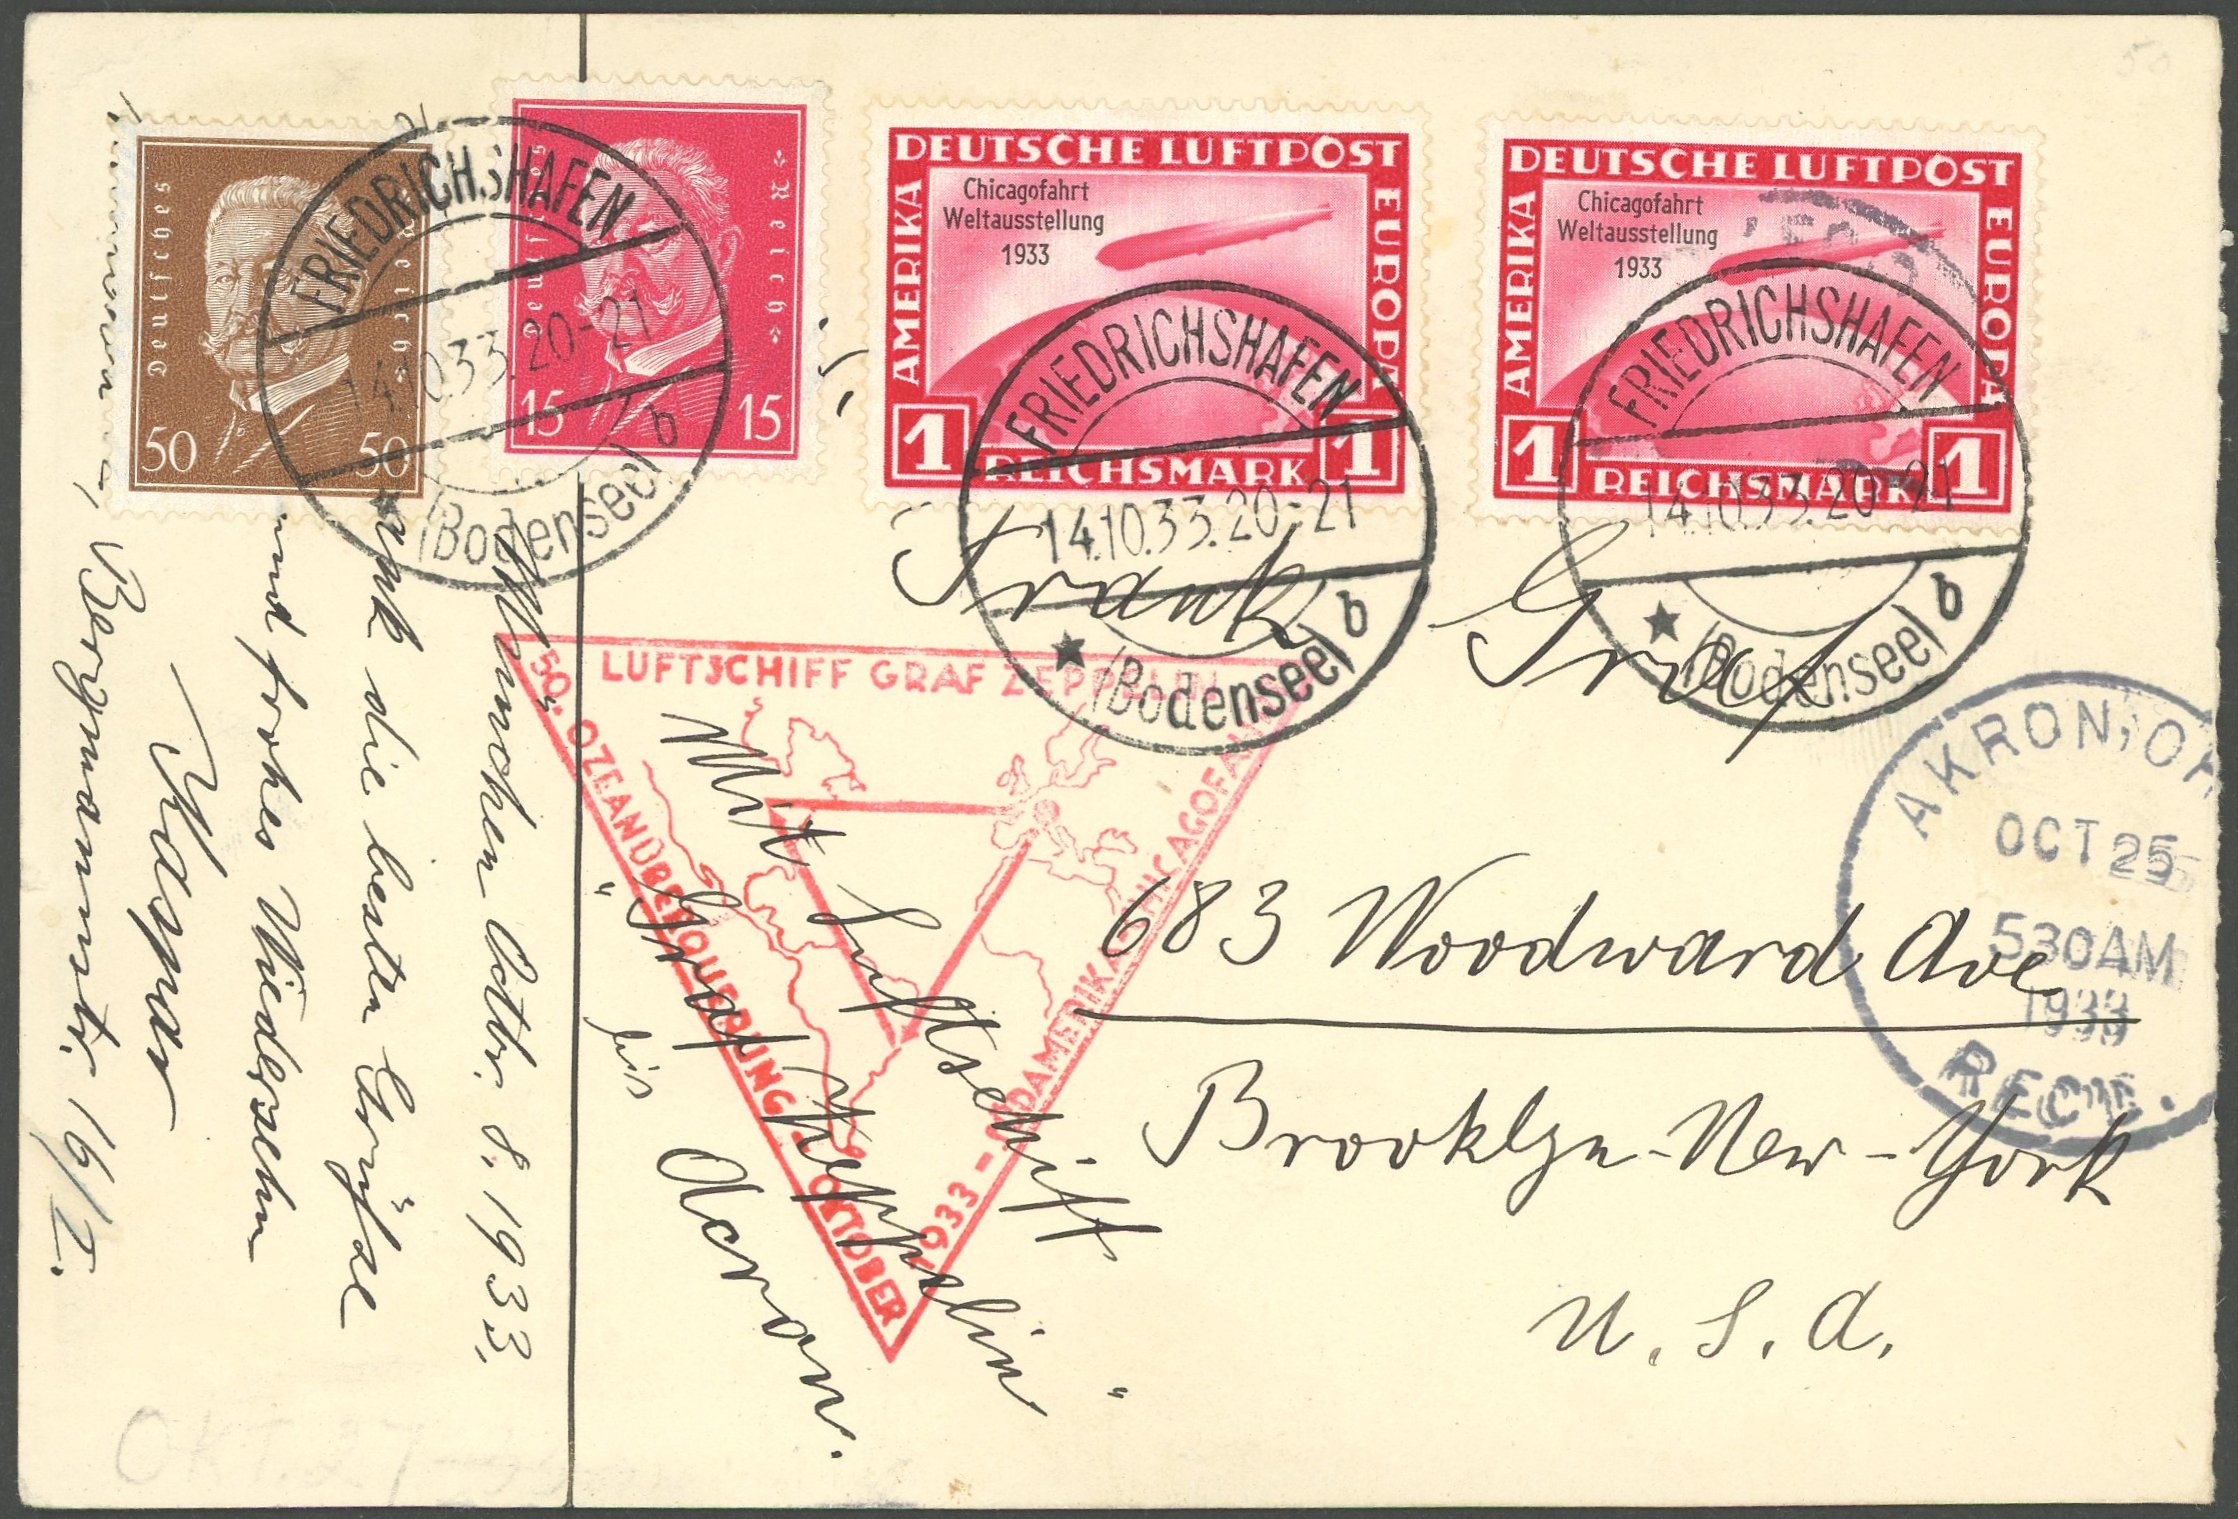 Deutsches Reich
50 50
Deutsches Reich
15 15
DEUTSCHE LUFTPOST
AMERIKA
EUROPA
Chicagofahrt
Weltausstellung
1933
1 REICHSMARK 1
DEUTSCHE LUFTPOST
AMERIKA
EUROPA
Chicagofahrt
Weltausstellung
1933
1 REICHSMARK 1
FRIEDRICHSHAFEN
14.10.33.20-21
(Bodensee) b
FRIEDRICHSHAFEN
14.10.33.20-21
(Bodensee) b
FRIEDRICHSHAFEN
14.10.33.20-21
(Bodensee) b
50
München Oktbr. 8. 1933.
die besten Grüße
und frohes Wiedersehen
Kaspar
Bergmannstr. 16/2.
Frank Graf
683 Woodward Ave
Brooklyn-New-York
U.S.A.
Mit Luftschiff
"Graf Zeppelin"
bis
Acron.
LUFTSCHIFF GRAF ZEPPELIN
50. OZEANÜBERQUERUNG - OKTOBER
1933 - SÜDAMERIKA CHICAGOFAHRT
AKRON, OH
OCT 25
530AM
1933
REC'D.
OKT. 27